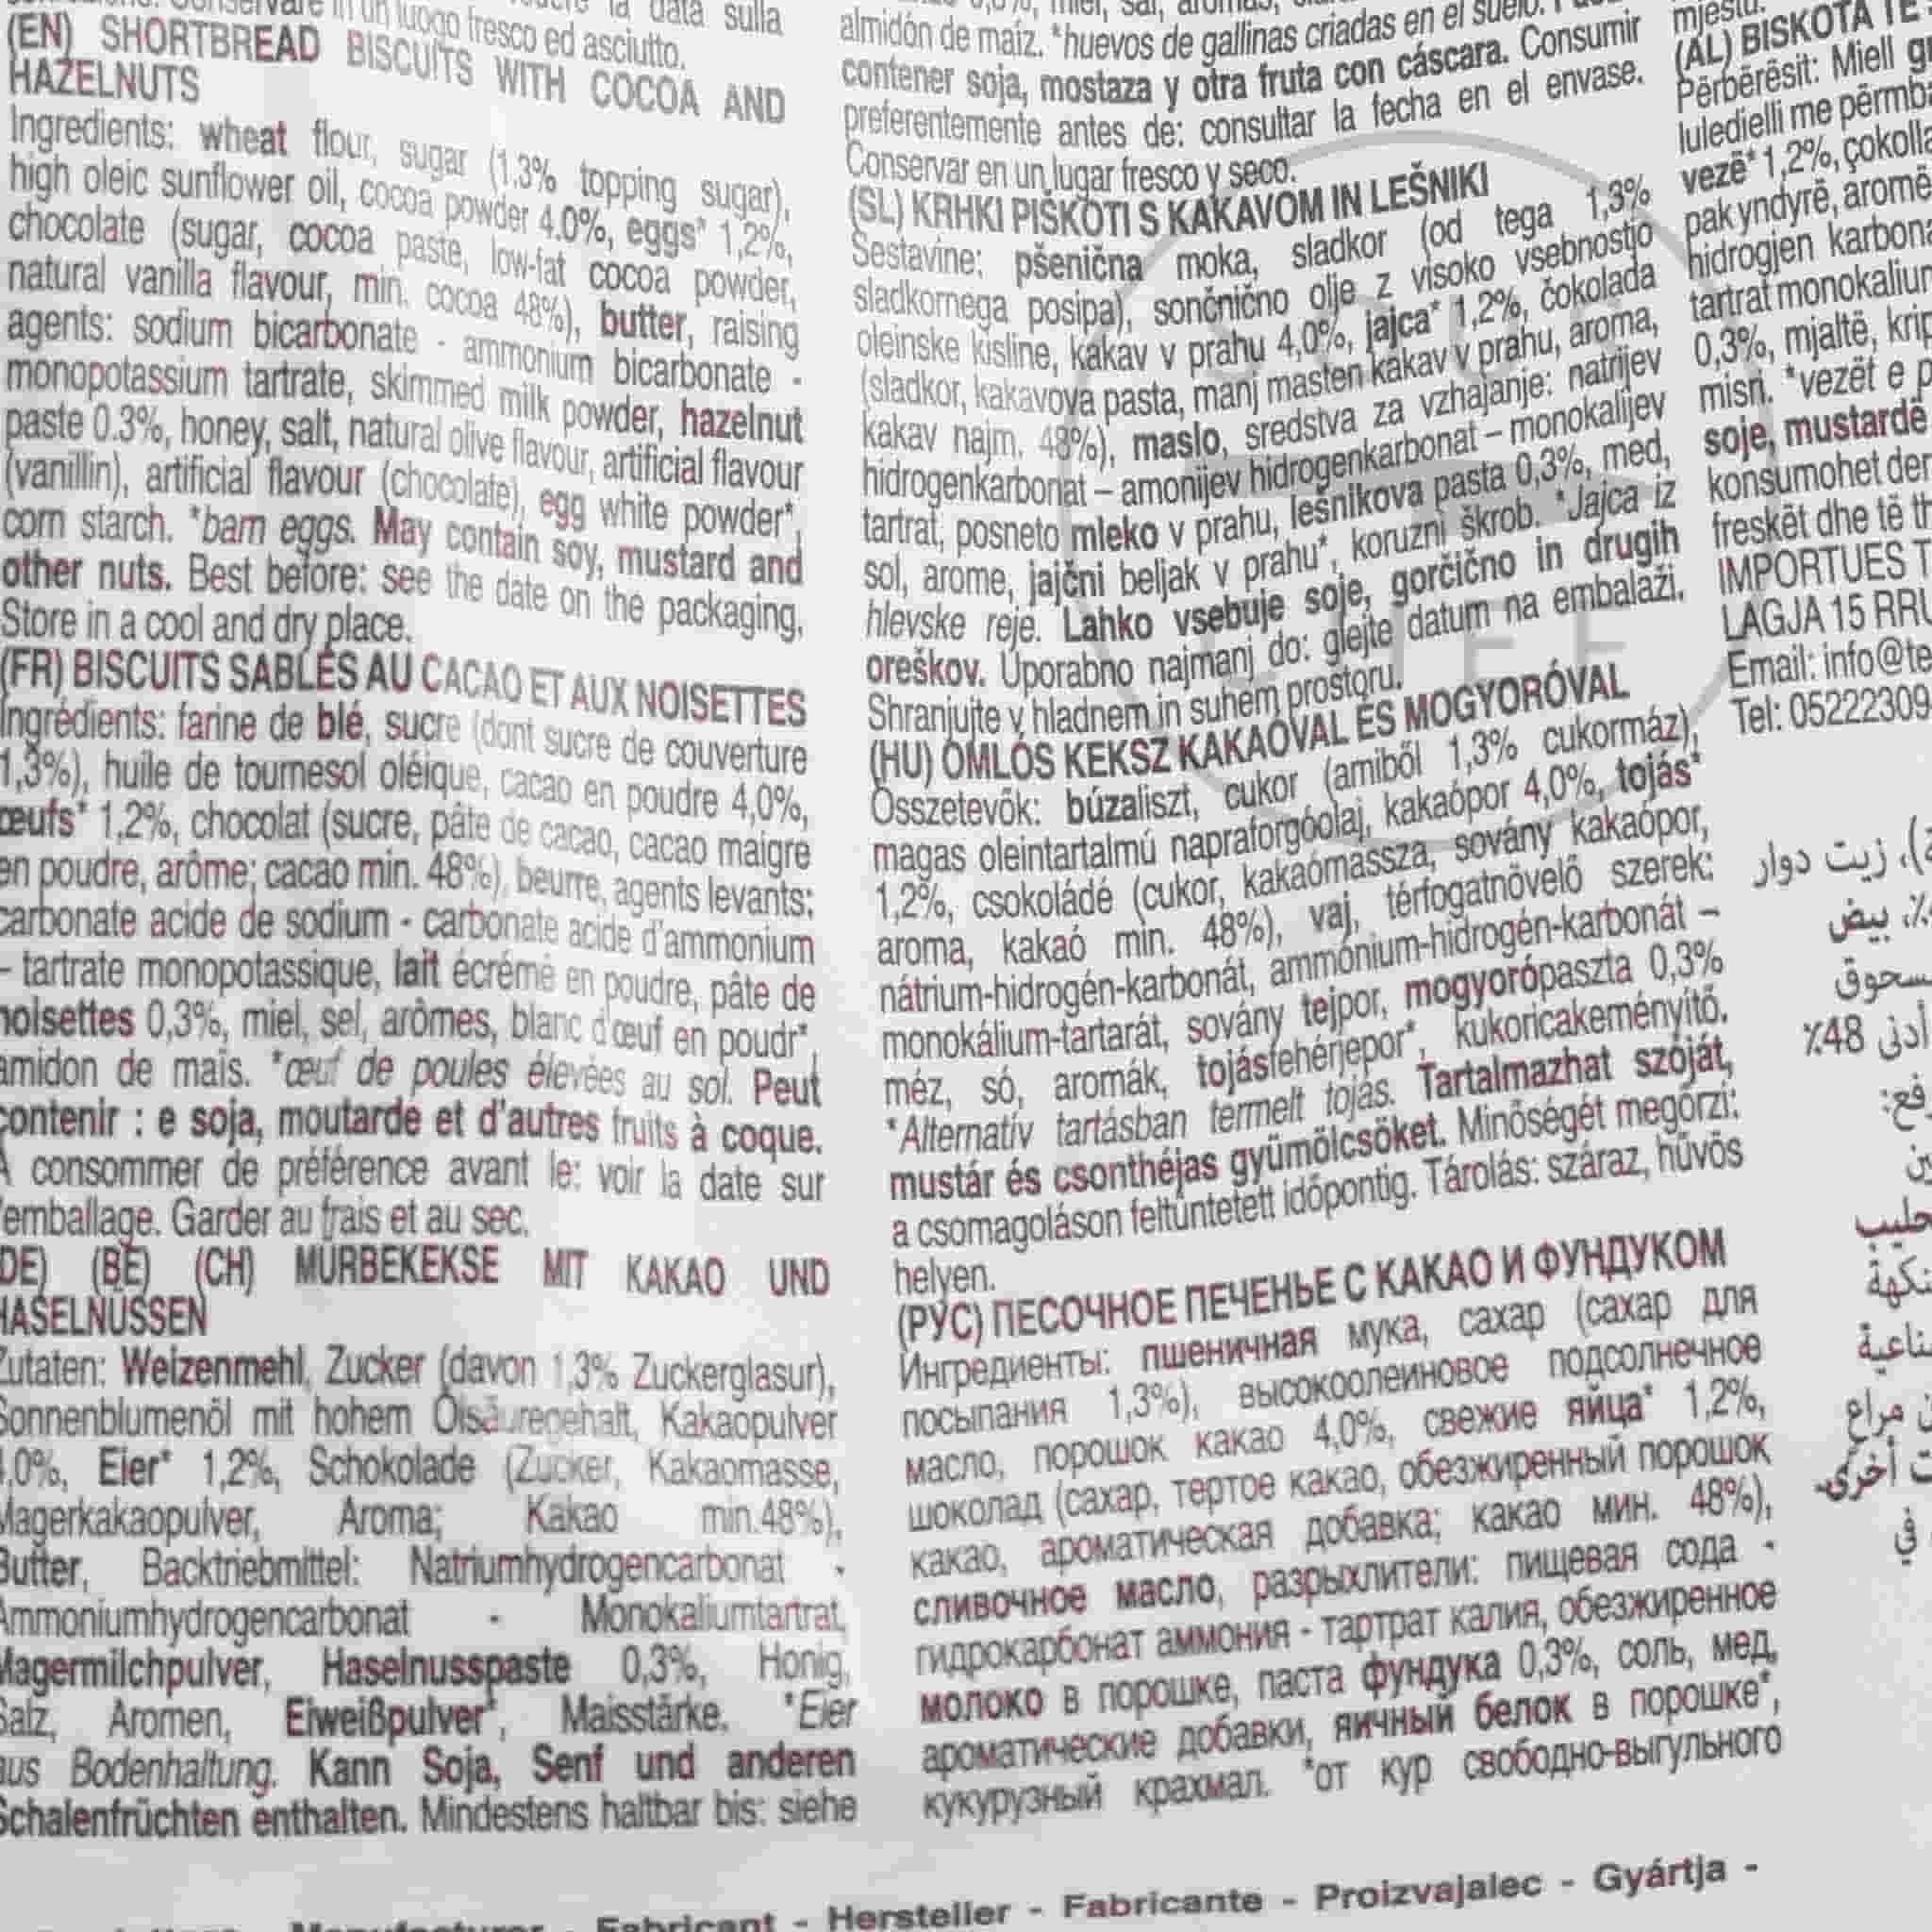 la data sulla
Conservare in un luogo fresco ed asciutto.
(EN) SHORTBREAD BISCUITS WITH COCOA AND
HAZELNUTS
Ingredients: wheat flour, sugar (1.3% topping sugar),
high oleic sunflower oil, cocoa powder 4.0%, eggs* 1,2%,
chocolate (sugar, cocoa paste, low-fat cocoa powder,
natural vanilla flavour, min. cocoa 48%), butter, raising
agents: sodium bicarbonate - ammonium bicarbonate -
monopotassium tartrate, skimmed milk powder, hazelnut
paste 0.3%, honey, salt, natural olive flavour, artificial flavour
(vanillin), artificial flavour (chocolate), egg white powder*,
corn starch. *barn eggs. May contain soy, mustard and
other nuts. Best before: see the date on the packaging,
Store in a cool and dry place.
(FR) BISCUITS SABLÉS AU CACAO ET AUX NOISETTES
Ingrédients: farine de blé, sucre (dont sucre de couverture
1,3%), huile de tournesol oléique, cacao en poudre 4,0%,
œufs* 1,2%, chocolat (sucre, pâte de cacao, cacao maigre
en poudre, arôme; cacao min. 48%), beurre, agents levants:
carbonate acide de sodium - carbonate acide d'ammonium
– tartrate monopotassique, lait écrémé en poudre, pâte de
noisettes 0,3%, miel, sel, arômes, blanc d'œuf en poudr*,
amidon de maïs. *œuf de poules élevées au sol. Peut
contenir : e soja, moutarde et d'autres fruits à coque.
À consommer de préférence avant le: voir la date sur
l'emballage. Garder au frais et au sec.
DE) (BE) (CH) MÜRBEKEKSE MIT KAKAO UND
HASELNÜSSEN
Zutaten: Weizenmehl, Zucker (davon 1,3% Zuckerglasur),
Sonnenblumenöl mit hohem Ölsäuregehalt, Kakaopulver
4,0%, Eier* 1,2%, Schokolade (Zucker, Kakaomasse,
Magerkakaopulver, Aroma; Kakao min.48%),
Butter, Backtriebmittel: Natriumhydrogencarbonat -
Ammoniumhydrogencarbonat - Monokaliumtartrat,
Magermilchpulver, Haselnusspaste 0,3%, Honig,
Salz, Aromen, Eiweißpulver*, Maisstärke. *Eier
aus Bodenhaltung. Kann Soja, Senf und anderen
Schalenfrüchten enthalten. Mindestens haltbar bis: siehe
almidón de maíz. *huevos de gallinas criadas en el suelo.
contener soja, mostaza y otra fruta con cáscara. Consumir
preferentemente antes de: consultar la fecha en el envase.
Conservar en un lugar fresco y seco.
(SL) KRHKI PIŠKOTI S KAKAVOM IN LEŠNIKI
Sestavine: pšenična moka, sladkor (od tega 1,3%
sladkornega posipa), sončnično olje z visoko vsebnostjo
oleinske kisline, kakav v prahu 4,0%, jajca* 1,2%, čokolada
(sladkor, kakavova pasta, manj masten kakav v prahu, aroma,
kakav najm. 48%), maslo, sredstva za vzhajanje: natrijev
hidrogenkarbonat – amonijev hidrogenkarbonat – monokalijev
tartrat, posneto mleko v prahu, lešnikova pasta 0,3%, med,
sol, arome, jajčni beljak v prahu*, koruzni škrob. *Jajca iz
hlevske reje. Lahko vsebuje soje, gorčično in drugih
oreškov. Uporabno najmanj do: glejte datum na embalaži.
Shranjujte v hladnem in suhem prostoru.
(HU) OMLÓS KEKSZ KAKAÓVAL ÉS MOGYORÓVAL
Összetevők: búzaliszt, cukor (amiből 1,3% cukormáz),
magas oleintartalmú napraforgóolaj, kakaópor 4,0%, tojás*
1,2%, csokoládé (cukor, kakaómassza, sovány kakaópor,
aroma, kakaó min. 48%), vaj, térfogatnövelő szerek:
nátrium-hidrogén-karbonát, ammónium-hidrogén-karbonát –
monokálium-tartarát, sovány tejpor, mogyorópaszta 0,3%
méz, só, aromák, tojásfehérjepor*, kukoricakeményítő.
*Alternatív tartásban termelt tojás. Tartalmazhat szóját,
mustár és csonthéjas gyümölcsöket. Minőségét megőrzi:
a csomagoláson feltüntetett időpontig. Tárolás: száraz, hűvös
helyen.
(РУС) ПЕСОЧНОЕ ПЕЧЕНЬЕ С КАКАО И ФУНДУКОМ
Ингредиенты: пшеничная мука, сахар (сахар для
посыпания 1,3%), высокоолеиновое подсолнечное
масло, порошок какао 4,0%, свежие яйца* 1,2%,
шоколад (сахар, тертое какао, обезжиренный порошок
какао, ароматическая добавка; какао мин. 48%),
сливочное масло, разрыхлители: пищевая сода -
гидрокарбонат аммония - тартрат калия, обезжиренное
молоко в порошке, паста фундука 0,3%, соль, мед,
ароматические добавки, яичный белок в порошке*,
кукурузный крахмал. *от кур свободно-выгульного
mjestu.
(AL) BISKOTA TË
Përbërësit: Miell
luledielli me
vezë* 1,2%,
pak yndyrë, aromë
hidrogjen
tartrat
0,3%, mjaltë,
misri. *vezët e
soje, mustardë
konsumohet
freskët dhe të
IMPORTUES
LAGJA 15
Email:
Tel: 05222309
زيت دوار
بيض
أدنى 48٪
مراع
أخرى.
في
Manufacturer - Fabricant - Hersteller - Fabricante - Proizvajalec - Gyártja -